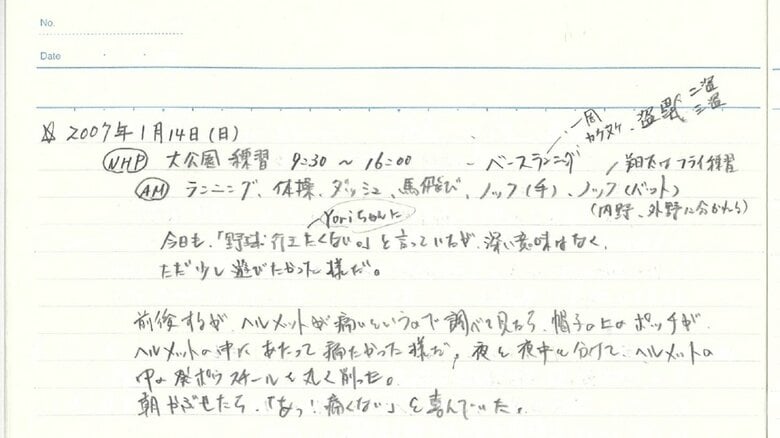 No.
Date
一周
カケヌケ、盗塁 二盗
三盗
☆ 2007年1月14日(日)
NHP 大公園練習 9:30 ~ 16:00 ベースランニング 翔太はフライ練習
AM ランニング、体操、ダッシュ、馬飛び、ノック(手)、ノック(バット)
(内野、外野に分かれる)
Yoriちゃんに
今日も、「野球行きたくない。」と言っていたが、深い意味はなく、
ただ少し遊びたかった様だ。
前後するが、ヘルメットが痛いというので調べて見たら、帽子の上のポッチが
ヘルメットの中にあたって痛たかった様だ、夜と夜中に分けて、ヘルメットの
中の発ポウスチールを丸く削った。
朝かぶせたら、「あっ!痛くない」と喜んでいた。